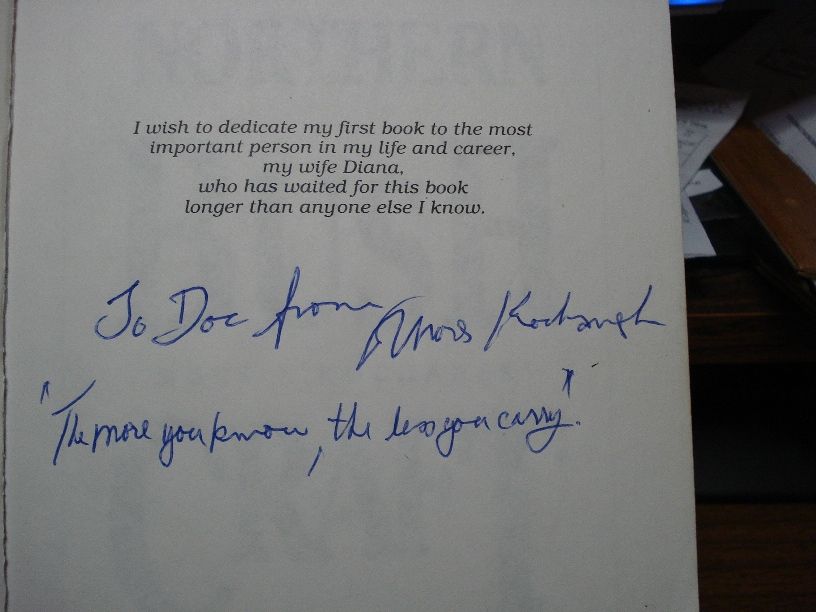 I wish to dedicate my first book to the most
important person in my life and career,
my wife Diana,
who has waited for this book
longer than anyone else I know.
To Doc from Mors Kochanski
"The more you know, the less you carry".